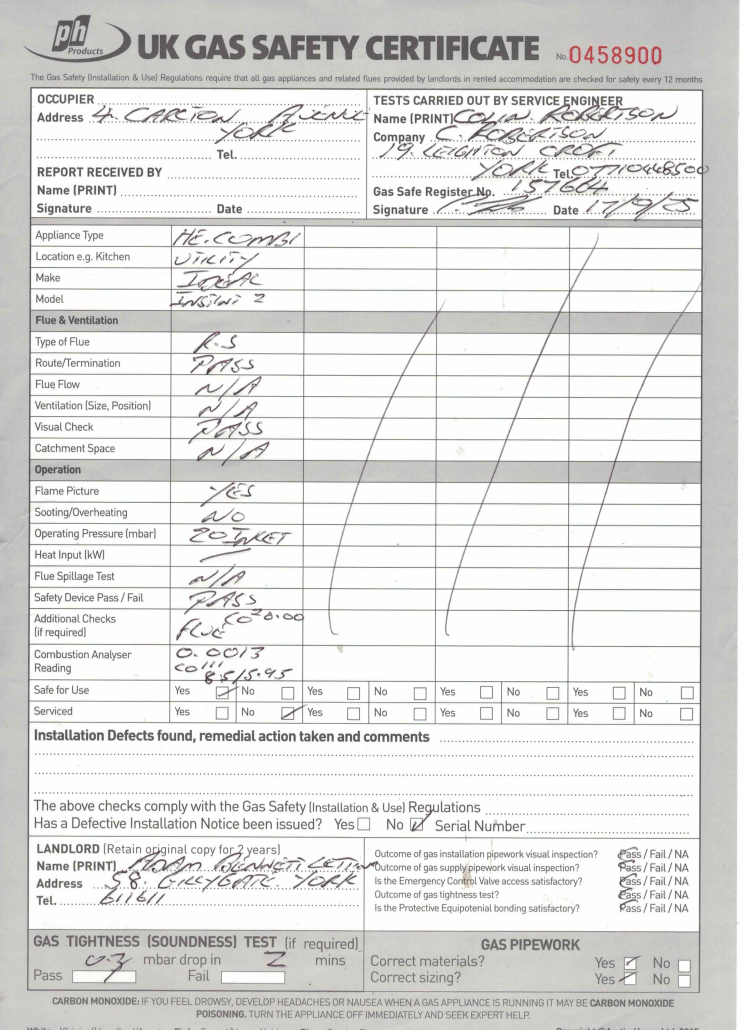 ph Products UK GAS SAFETY CERTIFICATE No. 0458900
The Gas Safety (Installation & Use) Regulations require that all gas appliances and related flues provided by landlords in rented accommodation are checked for safety every 12 months
OCCUPIER
Address 4. CARLTON AVENUE
YORK
Tel.
REPORT RECEIVED BY
Name (PRINT)
Signature Date
TESTS CARRIED OUT BY SERVICE ENGINEER
Name (PRINT) COLIN ROBERTSON
Company C. ROBERTSON
19. LEIGHTON CROFT
YORK Tel. 07710448500
Gas Safe Register No. 157664
Signature Date 17/9/25
Appliance Type HE. COMBI
Location e.g. Kitchen UTILITY
Make IDEAL
Model
Flue & Ventilation
Type of Flue R.S
Route/Termination PASS
Flue Flow N/A
Ventilation (Size, Position) N/A
Visual Check PASS
Catchment Space N/A
Operation
Flame Picture YES
Sooting/Overheating NO
Operating Pressure (mbar) 20 INLET
Heat Input (kW)
Flue Spillage Test N/A
Safety Device Pass / Fail PASS
Additional Checks CO2 0.00
(if required) FLUE
Combustion Analyser 0.0013
Reading CO 111
85/5.95
Safe for Use Yes No Yes No Yes No Yes No
Serviced Yes No Yes No Yes No Yes No
Installation Defects found, remedial action taken and comments
The above checks comply with the Gas Safety (Installation & Use) Regulations
Has a Defective Installation Notice been issued? Yes No Serial Number
LANDLORD (Retain original copy for 2 years)
Name (PRINT) ADAM BENNETT
Address 58. GILLYGATE. YORK
Tel. 611611
Outcome of gas installation pipework visual inspection? Pass / Fail / NA
Outcome of gas supply pipework visual inspection? Pass / Fail / NA
Is the Emergency Control Valve access satisfactory? Pass / Fail / NA
Outcome of gas tightness test? Pass / Fail / NA
Is the Protective Equipotential bonding satisfactory? Pass / Fail / NA
GAS TIGHTNESS (SOUNDNESS) TEST (if required)
mbar drop in 2 mins
Pass Fail
GAS PIPEWORK
Correct materials? Yes No
Correct sizing? Yes No
CARBON MONOXIDE: IF YOU FEEL DROWSY, DEVELOP HEADACHES OR NAUSEA WHEN A GAS APPLIANCE IS RUNNING IT MAY BE CARBON MONOXIDE
POISONING. TURN THE APPLIANCE OFF IMMEDIATELY AND SEEK EXPERT HELP.